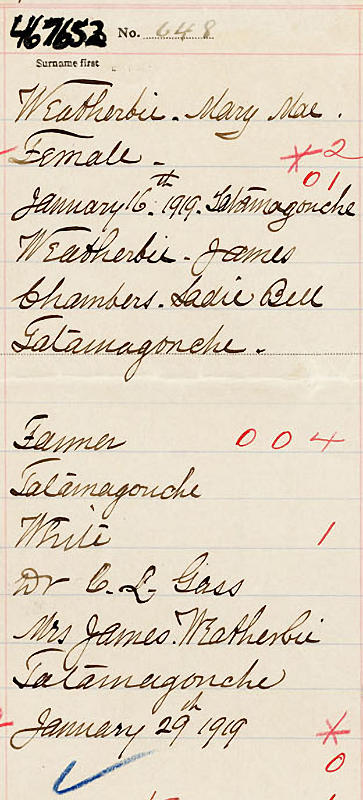 467653 No. 648
Surname first
Weatherbie. Mary Mae.
Female - * 2
01
January 16th. 1919. Tatamagouche
Weatherbie - James
Chambers. Sadie Bell
Tatamagouche.
Farmer 0 0 4
Tatamagouche
White 1
Dr C. L. Gass
Mrs James. Weatherbie
Tatamagouche
January 29th 1919 *
0